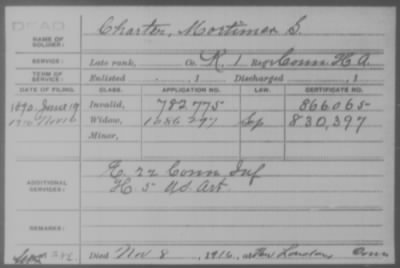 DEAD
NAME OF SOLDIER: Charter, Mortimer S.
SERVICE: Late rank, Co. K. 1 Reg't Conn H A.
TERM OF SERVICE: Enlisted , 1 Discharged , 1
DATE OF FILING. CLASS. APPLICATION NO. LAW. CERTIFICATE NO.
1890 June 19 Invalid, 782,775 866,065
1916 Nov 16 Widow, 830,397
Minor,
ADDITIONAL SERVICES: K. 22 Conn Inf
H 5 US. Art.
REMARKS:
Died Nov 8, 1916, at New London Conn